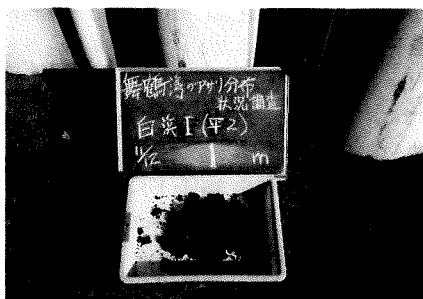 舞鶴湾のアサリ分布
状況調査
白浜I(平2)
11/12 1 m